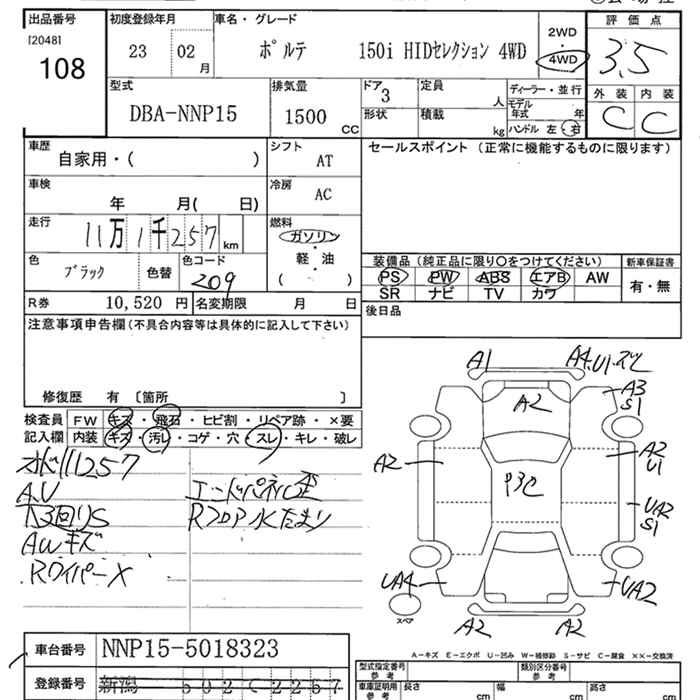 出品番号
[2048]
108
初度登録年月
23 02 月
車名・グレード
ポルテ 150i HIDセレクション 4WD
2WD
・
4WD
評価点
3.5
外装 内装
C C
型式
DBA-NNP15
排気量
1500 CC
ドア 3
形状
定員 人
積載 kg
ディーラー・並行
モデル年式 年
ハンドル 左・右
車歴
自家用・( )
シフト
AT
セールスポイント (正常に機能するものに限ります)
車検
年 月( 日)
冷房
AC
走行
11万1千257 km
燃料
ガソリン
軽・油
( )
色
ブラック
色替
色コード
209
装備品 (純正品に限り○をつけてください)
新車保証書
PS PW ABS エアB AW
SR ナビ TV カワ
有・無
R券 10,520 円
名変期限 月 日
後日品
注意事項申告欄 (不具合内容等は具体的に記入して下さい)
修復歴 有 [箇所 ]
検査員
記入欄
FW キズ・飛石・ヒビ割・リペア跡・×要
内装 キズ・汚れ・コゲ・穴・スレ・キレ・破レ
A.U
AWキズ
Rワイパー×
エンドパネル歪
Rフロア水たまり
A1
A2
A3
S1
A2
A2
U1
P3C
UA2
S1
UA4
UA2
スペア
A2
A2
A-キズ E-エクボ U-凹み W-補修跡 S-サビ C-腐食 XX-交換済
車台番号 NNP15-5018323
登録番号 新潟 502 C 2257
型式指定番号
参考
類別区分番号
参考
車庫証明用
参考
長さ cm
幅 cm
高さ cm